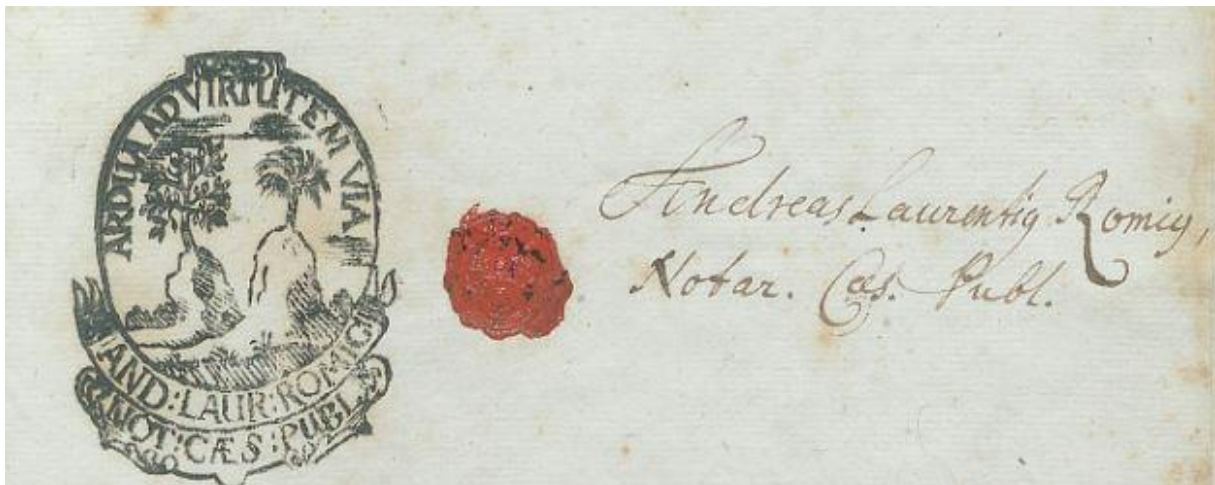 ARDUA AD VIRTUTEM VIA
AND: LAUR: ROMIG
NOT: CÆS: PUBL
Andreas Laurentig Romig,
Notar. Cæs. Publ.